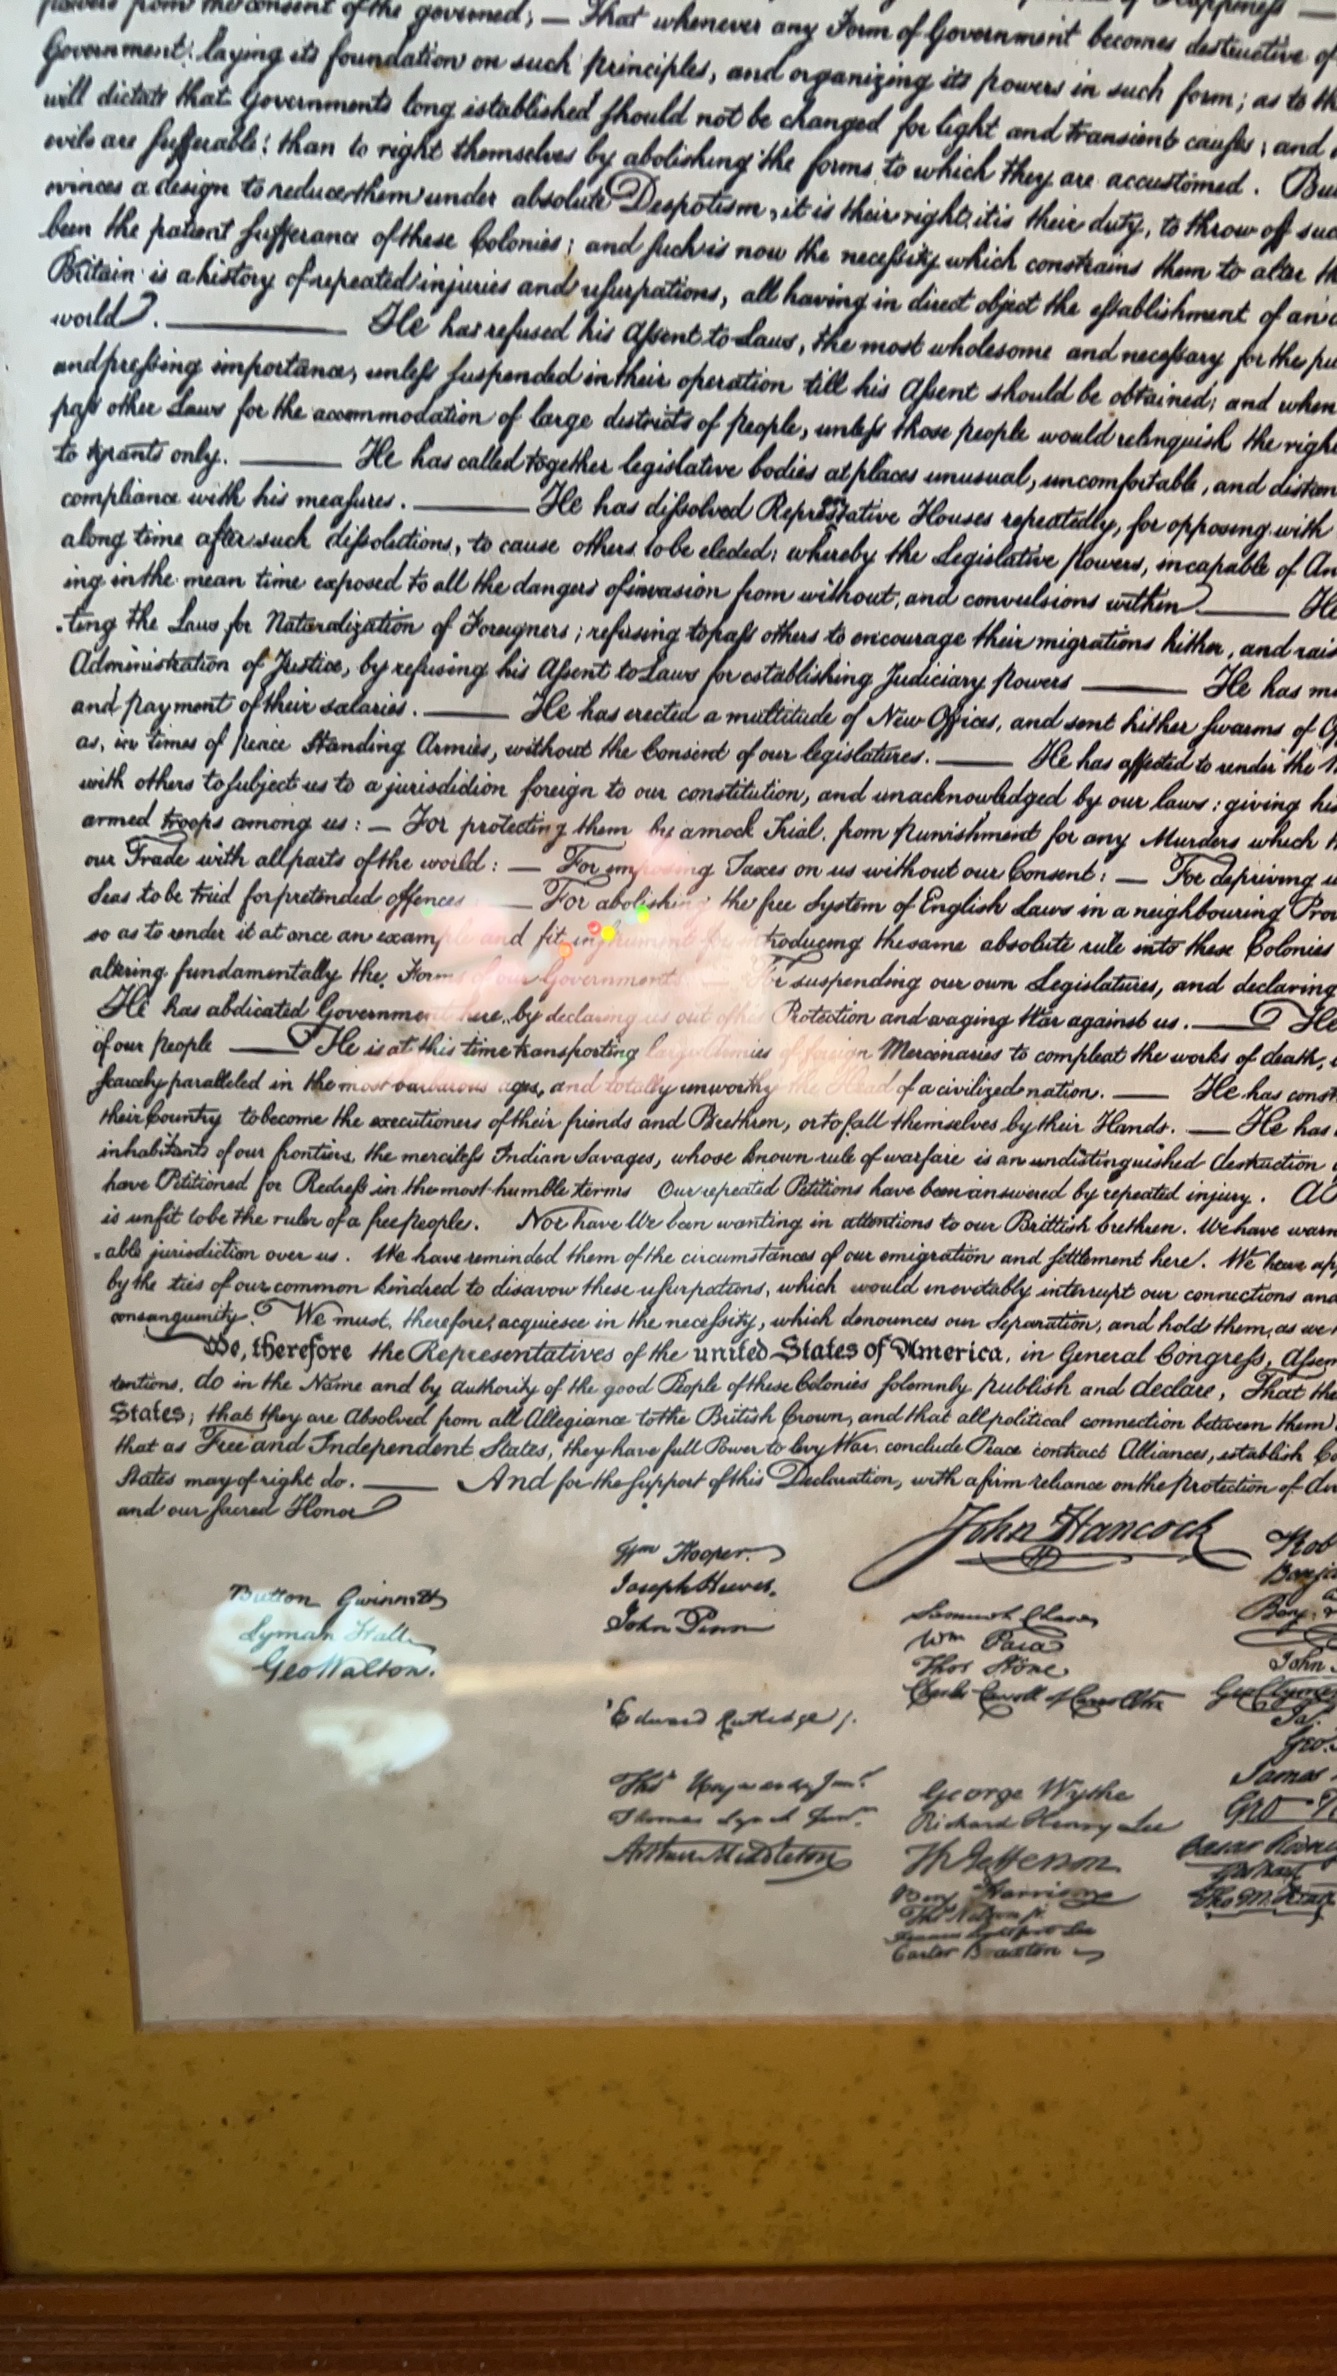 powers from the consent of the governed; — That whenever any Form of Government becomes destructive of
Government: laying its foundation on such principles, and organizing its powers in such form; as to th
will dictate that Governments long established should not be changed for light and transient causes; and
evils are sufferable: than to right themselves by abolishing the forms to which they are accustomed. Bu
evinces a design to reduce them under absolute Despotism, it is their right, it is their duty, to throw off suc
been the patient sufferance of these Colonies; and such is now the necessity which constrains them to alter th
Britain is a history of repeated injuries and usurpations, all having in direct object the establishment of an
world. — He has refused his Assent to Laws, the most wholesome and necessary for the pu
and pressing importance, unless suspended in their operation till his Assent should be obtained; and when
pass other Laws for the accommodation of large districts of people, unless those people would relinquish the right
to tyrants only. — He has called together legislative bodies at places unusual, uncomfortable, and distan
compliance with his measures. — He has dissolved Representative Houses repeatedly, for opposing with
a long time after such dissolutions, to cause others to be elected; whereby the Legislative powers, incapable of An
ing in the mean time exposed to all the dangers of invasion from without, and convulsions within. — He
ting the Laws for Naturalization of Foreigners; refusing to pass others to encourage their migrations hither, and rais
Administration of Justice, by refusing his Assent to Laws for establishing Judiciary powers — He has m
and payment of their salaries. — He has erected a multitude of New Offices, and sent hither swarms of Of
as, in times of peace Standing Armies, without the Consent of our legislatures. — He has affected to render the M
with others to subject us to a jurisdiction foreign to our constitution, and unacknowledged by our laws; giving his
armed troops among us: — For protecting them by a mock Trial, from punishment for any Murders which th
our Trade with all parts of the world: — For imposing Taxes on us without our Consent: — For depriving u
Seas to be tried for pretended offences — For abolishing the free System of English Laws in a neighbouring Prov
so as to render it at once an example and fit instrument for introducing the same absolute rule into these Colonies
altering fundamentally the Forms of our Governments: — For suspending our own Legislatures, and declaring
He has abdicated Government here, by declaring us out of his Protection and waging War against us. — He
of our people — He is at this time transporting large Armies of foreign Mercenaries to compleat the works of death,
scarcely paralleled in the most barbarous ages, and totally unworthy the Head of a civilized nation. — He has const
their Country to become the executioners of their friends and Brethren, or to fall themselves by their Hands. — He has
inhabitants of our frontiers, the merciless Indian Savages, whose known rule of warfare is an undistinguished destruction
have Petitioned for Redress in the most humble terms Our repeated Petitions have been answered by repeated injury. A
is unfit to be the ruler of a free people. Nor have We been wanting in attentions to our Brittish brethren. We have warn
able jurisdiction over us. We have reminded them of the circumstances of our emigration and settlement here. We have ap
by the ties of our common kindred to disavow these usurpations, which would inevitably interrupt our connections and
consanguinity. We must, therefore, acquiesce in the necessity, which denounces our Separation, and hold them, as we
We, therefore the Representatives of the united States of America, in General Congress, Assem
tentions, do in the Name and by authority of the good People of these Colonies solemnly publish and declare, That the
States; that they are Absolved from all Allegiance to the British Crown, and that all political connection between them
that as Free and Independent States, they have full Power to levy War, conclude Peace contract Alliances, establish Co
States may of right do. — And for the support of this Declaration, with a firm reliance on the protection of div
and our sacred Honor
John Hancock
Rob
Button Gwinnett
Lyman Hall
Geo Walton.
Wm Hooper.
Joseph Hewes,
John Penn
Edward Rutledge /.
Thos Heyward Junr.
Thomas Lynch Junr.
Arthur Middleton
Samuel Chase
Wm Paca
Thos Stone
Charles Carroll of Carrollton
George Wythe
Richard Henry Lee
Th Jefferson
Benj Harrison
Thos Nelson jr.
Francis Lightfoot Lee
Carter Braxton
Benj
John
Geo Clymer
Ja.
Geo.
James
Geo
Caesar Rodney
Geo Read
Tho M:Kean